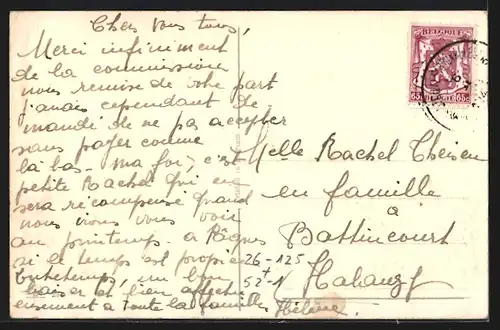 Chers vous tous,
Merci infiniment
de la commissione
nous remise de votre part
j'avais cependant de
mandé de ne pas accepter
sans payer comme
là bas. ma foi, c'est
petite Rachel qui en
sera récompensé quand
nous irons vous voir
au printemps. à Pâques
si le temps est propice
un bon
baiser et bien affectu
eusement à toute la famille
Hélène
BELGIQUE
65c BELGIË 65c
Melle Rachel Theisen
en famille
à
Battincourt
Halanzy
26-125
+
52-1